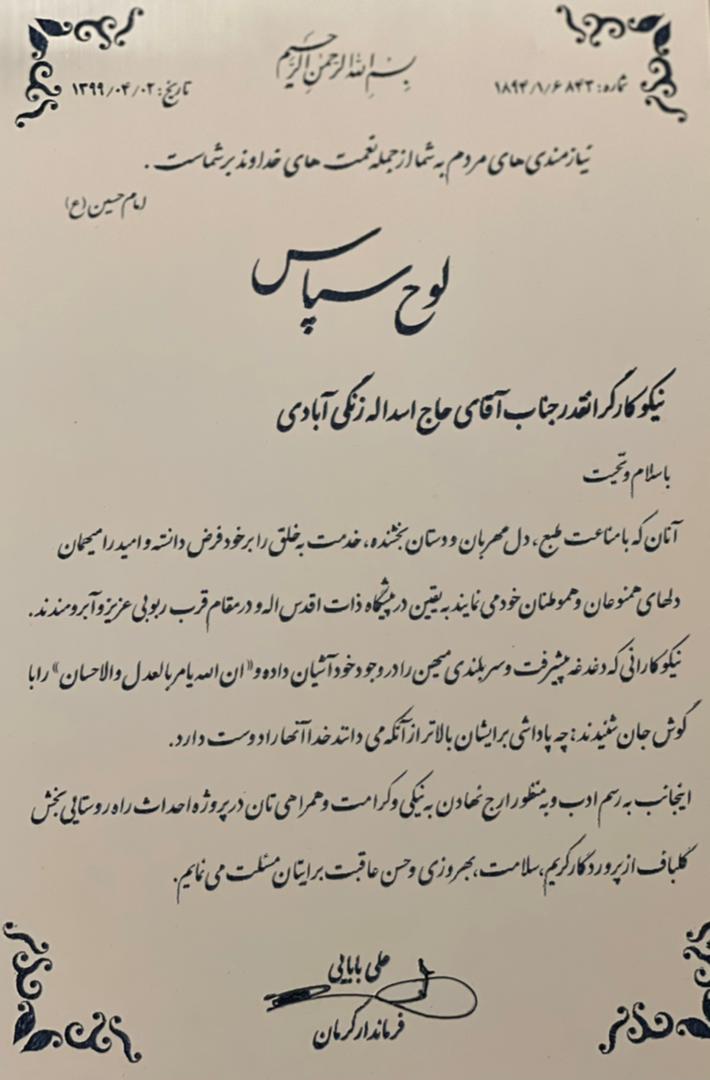 بسم الله الرحمن الرحیم
شماره: ۱۸۹۴/۱/۶۸۴۳
تاریخ: ۱۳۹۹/۰۴/۰۲
نیازمندی های مردم به شما از جمله نعمت های خداوند بر شماست .
امام حسین (ع)
لوح سپاس
نیکوکار گرانقدر جناب آقای حاج اسداله زنگی آبادی
با سلام و تحیت
آنان که با مناعت طبع، دل مهربان و دستان بخشنده، خدمت به خلق را بر خود فرض دانسته و امید را میهمان
دلهای همنوعان و هموطنان خود می نمایند به یقین در پیشگاه ذات اقدس اله و در مقام قرب ربوبی عزیز و آبرومندند.
نیکوکارانی که دغدغه پیشرفت و سربلندی میهن را در وجود خود آشیان داده و «ان الله یامر بالعدل والاحسان» را با
گوش جان شنیدند: چه پاداشی برایشان بالاتر از آنکه می دانند خدا آنها را دوست دارد.
اینجانب به رسم ادب و به منظور ارج نهادن به نیکی و کرامت و همراهی تان در پروژه احداث راه روستایی بخش
گلباف از پروردگار کریم، سلامت، بهروزی و حسن عاقبت برایتان مسئلت می نمایم.
علی بابایی
فرماندار کرمان